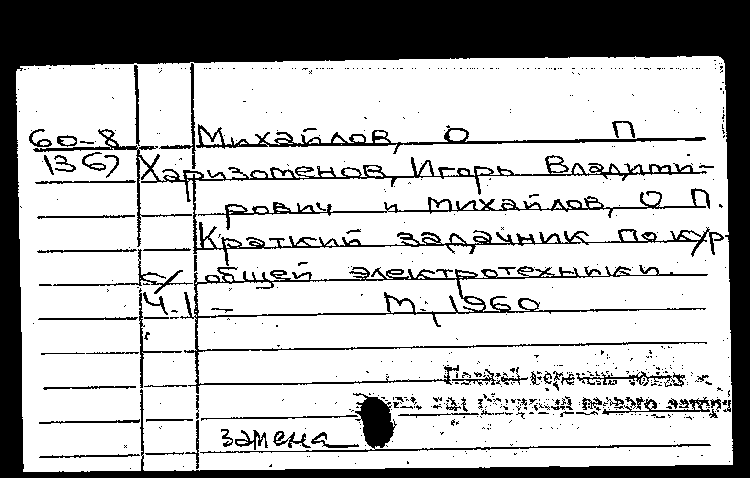 60-8 Михайлов, О П
1367 Харизоменов, Игорь Владими-
рович и Михайлов, О П.
Краткий задачник по кур-
с/ общей электротехники.
Ч.1 – М., 1960
Полный перечень томов
первого автора
замена